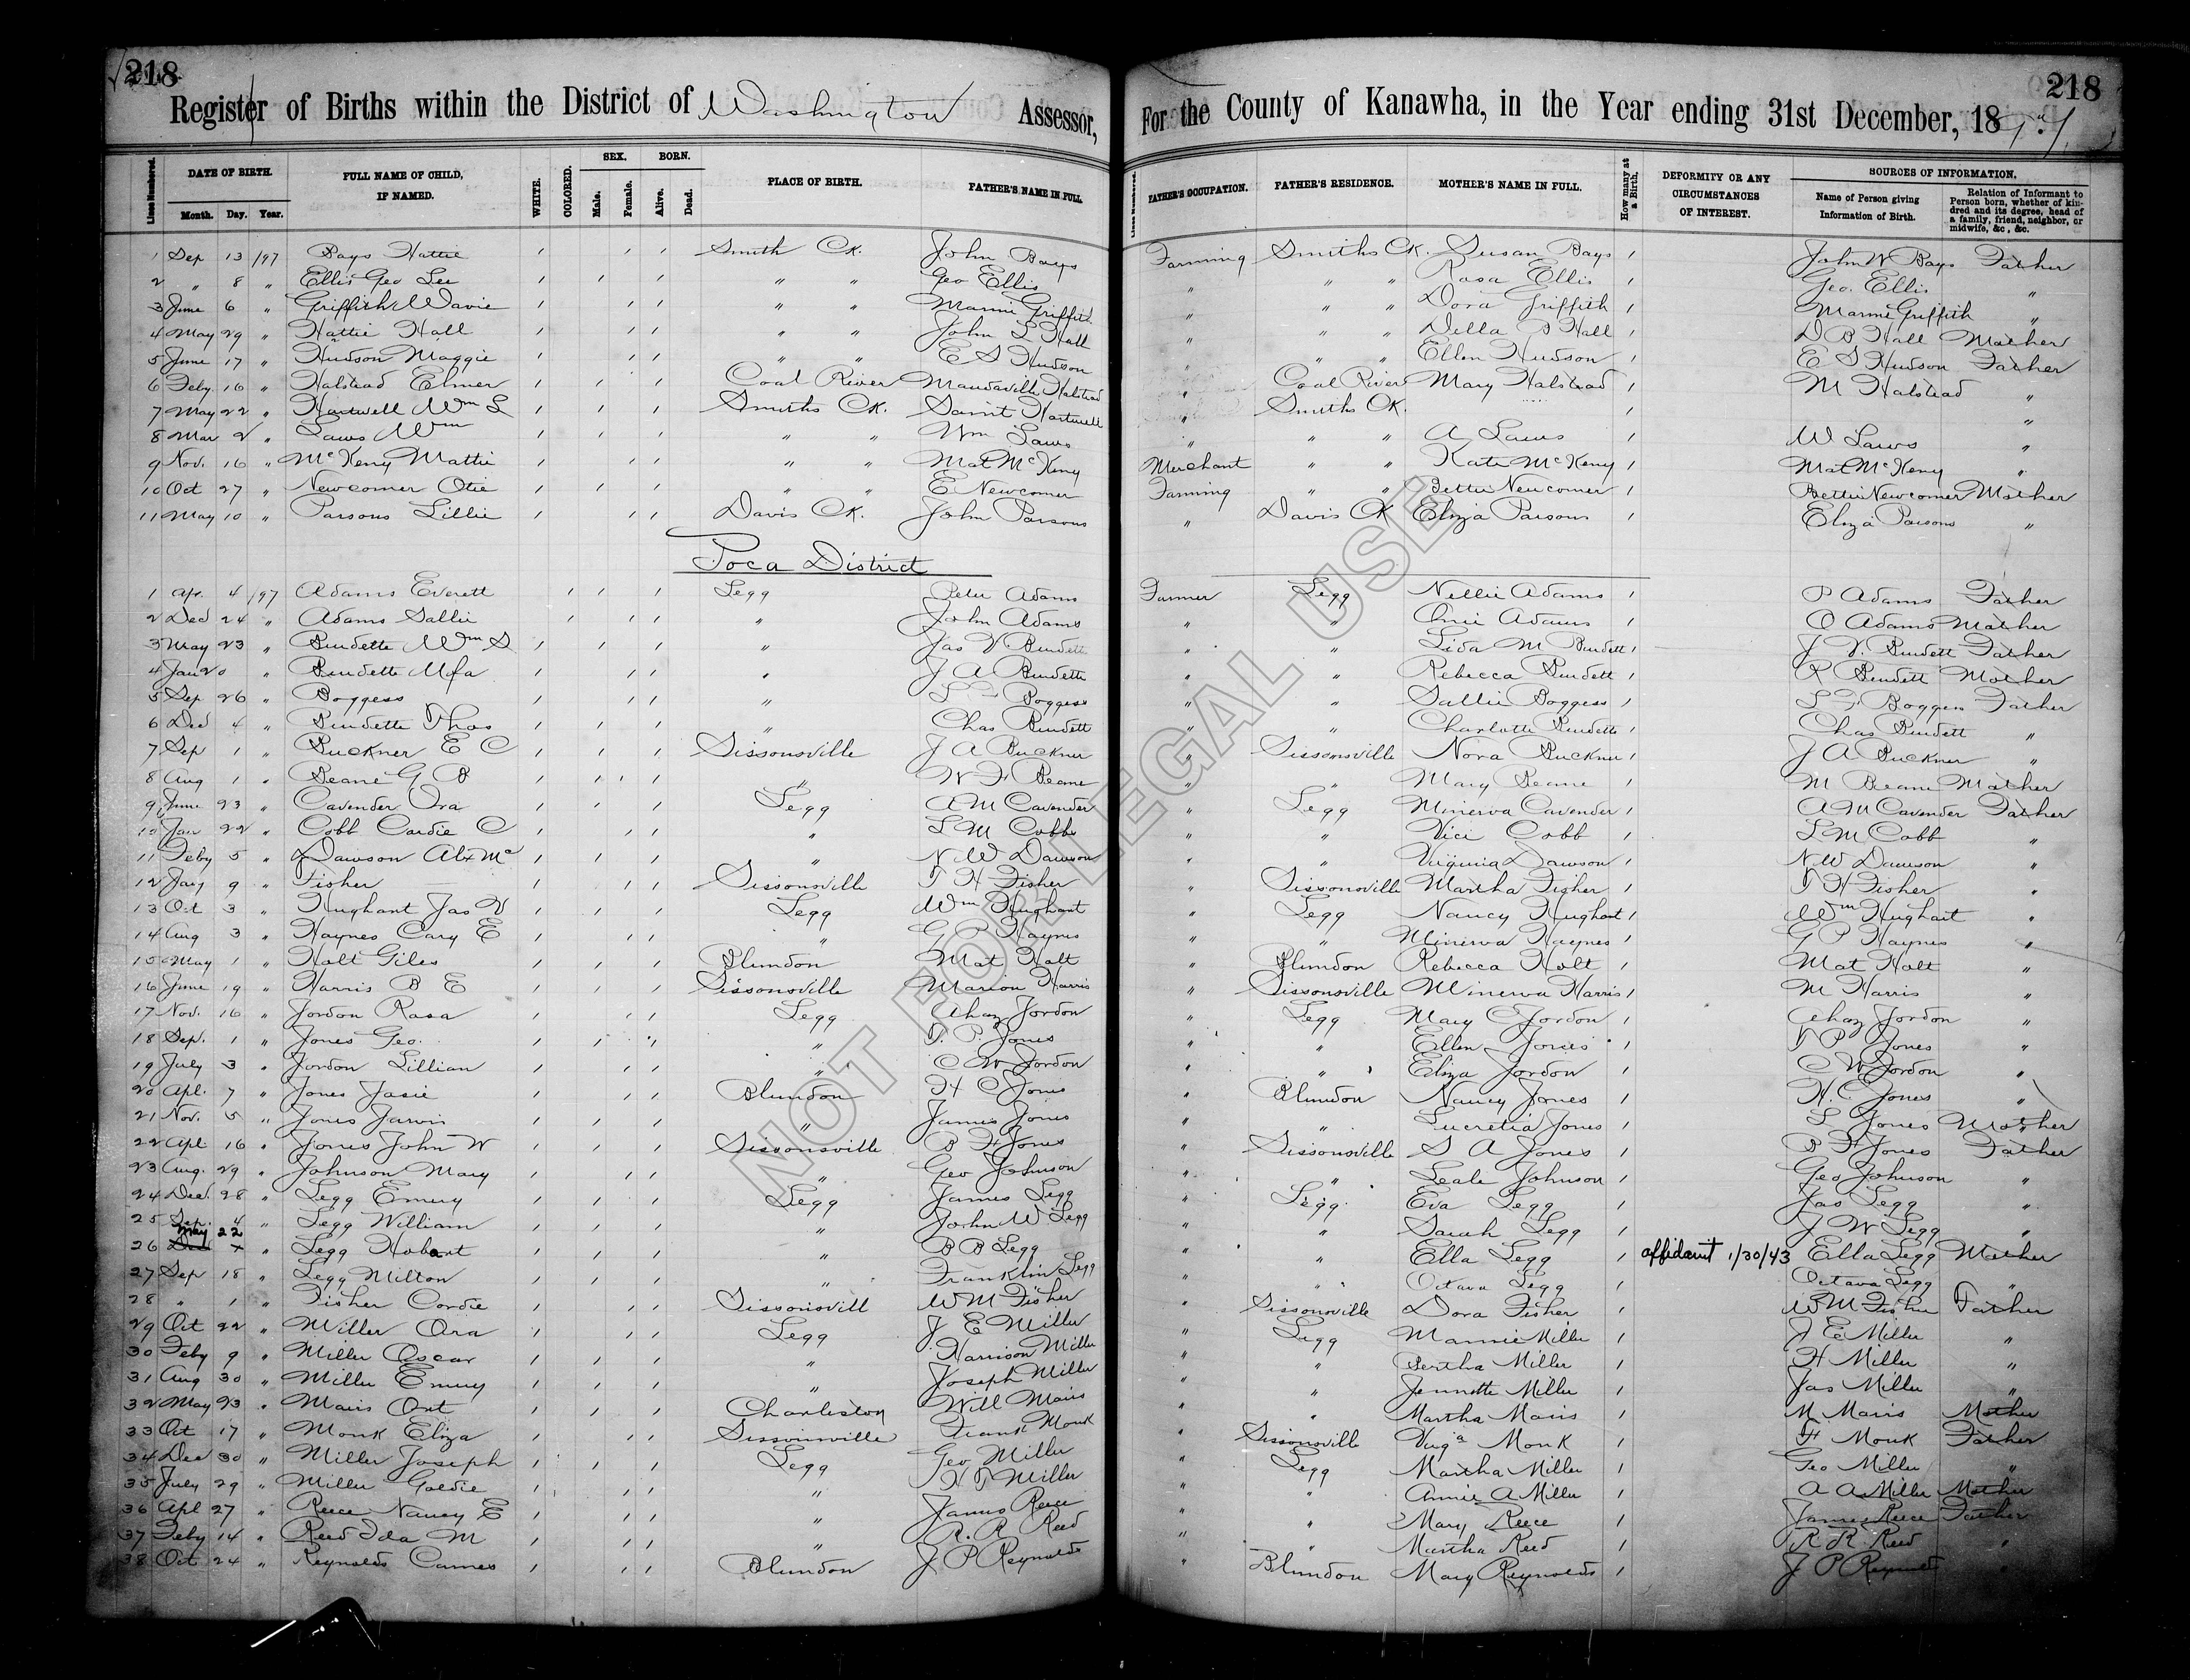 218
218
Register of Births within the District of Washington Assessor, For the County of Kanawha, in the Year ending 31st December, 1897.
Lines Numbered. DATE OF BIRTH. Month. Day. Year. FULL NAME OF CHILD, IF NAMED. WHITE. COLORED. SEX. Male. Female. BORN. Alive. Dead. PLACE OF BIRTH. FATHER'S NAME IN FULL Lines Numbered. FATHER'S OCCUPATION. FATHER'S RESIDENCE. MOTHER'S NAME IN FULL. How many at a Birth. DEFORMITY OR ANY CIRCUMSTANCES OF INTEREST. SOURCES OF INFORMATION. Name of Person giving Information of Birth. Relation of Informant to Person born, whether of kindred and its degree, head of a family, friend, neighbor, or midwife, &c, &c.
1 Sep 13 /97 Bays Hattie / / / Smith Ck. John Bays Farming Smiths Ck. Susan Bays / John W Bays Father
2 " 8 " Ellis Geo Lee / / / " " Geo Ellis " " " Rosa Ellis / Geo. Ellis "
3 June 6 " Griffith Wavie / / / " " Marmi Griffith " " " Dora Griffith / Marmi Griffith "
4 May 29 " Hattie Hall / / / " " John L Hall " " " Della B Hall / D B Hall Mother
5 June 17 " Hudson Maggie / / / " " E S Hudson " " " Ellen Hudson / E S Hudson Father
6 Feby 16 " Halstead Elmer / / / Coal River Mandaville Halstead " Coal River Mary Halstead / M Halstead "
7 May 22 " Hartwell Wm L / / / Smiths Ck. Hartwell " Smiths Ck. / "
8 Mar 2 " Laws Wm / / / " " Wm Laws " " " A Laws / W Laws "
9 Nov. 16 " McKeny Mattie / / / " " Mat McKeny Merchant " " Kate McKeny / Mat McKeny "
10 Oct 27 " Newcomer Otie / / / " " E Newcomer Farming " " Bettie Newcomer / Bettie Newcomer Mother
11 May 10 " Parsons Lillie / / / Davis Ck. John Parsons " Davis Ck Eliza Parsons / Eliza Parsons "
Poca District
1 Apr. 4 /97 Adams Everett / / / Legg Peter Adams Farmer Legg Nellie Adams / P Adams Father
2 Dec 24 " Adams Sallie / / / " John Adams " " Adams / O Adams Mother
3 May 23 " Burdette Wm S / / / " Jas V Burdett " " Lida M Burdett / J V. Burdett Father
4 Jan 20 " Burdette / / / " J A Burdette " " Rebecca Burdett / R Burdett Mother
5 Sep 26 " Boggess / / / " L F Boggess " " Sallie Boggess / L F Boggess Father
6 Dec 4 " Burdette Thos / / / " Chas Burdett " " Charlotte Burdette / Chas Burdett "
7 Sep 1 " Buckner E C / / / Sissonsville J A Buckner " Sissonsville Nora Buckner / J A Buckner "
8 Aug 1 " Beane G B / / / / " W F Beane " " Mary Beane / M Beane Mother
9 June 23 " Cavender Ora / / / Legg A M Cavender " Legg Minerva Cavender / A M Cavender Father
10 Jan 22 " Cobb Cordie C / / / " L M Cobb " " Vici Cobb / L M Cobb "
11 Feby 5 " Dawson Alx Mc / / / " N W Dawson " " Virginia Dawson / N W Dawson "
12 Jany 9 " Fisher / / / Sissonsville T H Fisher " Sissonsville Martha Fisher / T H Fisher "
13 Oct 3 " Hughart Jas V / / / Legg Wm Hughart " Legg Nancy Hughart / Wm Hughart "
14 Aug 3 " Haynes Cary E / / / " G P Haynes " " Minerva Haynes / G P Haynes "
15 May 1 " Holt Giles / / / Blundon Mat Holt " Blundon Rebecca Holt / Mat Holt "
16 June 19 " Harris B E / / / Sissonsville Marion Harris " Sissonsville Minerva Harris / M Harris "
17 Nov. 16 " Jordon Rosa / / / Legg Ahaz Jordon " Legg Mary C Jordon / Ahaz Jordon "
18 Sep. 1 " Jones Geo. / / / " T. P. Jones " " Ellen Jones / T P Jones "
19 July 3 " Jordon Lillian / / / " C W Jordon " " Eliza Jordon / C W Jordon "
20 Apl. 7 " Jones Josie / / / Blundon H C Jones " Blundon Nancy Jones / H. C Jones "
21 Nov. 5 " Jones Jarvis / / / " James Jones " " Lucretia Jones / L Jones Mother
22 Apl 16 " Jones John W / / / Sissonsville B F Jones " Sissonsville S A Jones / B F Jones Father
23 Aug. 29 " Johnson Mary / / / " Geo Johnson " " Leale Johnson / Geo Johnson "
24 Dec. 28 " Legg Emery / / / Legg James Legg " Legg Eva Legg / Jas Legg "
25 Sep. 4 " Legg William / / / " John W Legg " " Sarah Legg / J W Legg "
May 22
26 Dec " Legg Hobart / / / " B B Legg " " Ella Legg / affidavit 1/30/43 Ella Legg Mother
27 Sep 18 " Legg Milton / / / " Franklin Legg " " Octava Legg / Octava Legg "
28 " 1 " Fisher Cordie / / / Sissonsvill W M Fisher " Sissonsville Dora Fisher / W M Fisher Father
29 Oct 22 " Miller Ora / / / Legg J E Miller " Legg Mamie Miller / J E Miller "
30 Feby 9 " Miller Oscar / / / " Harrison Miller " " Bertha Miller / H Miller "
31 Aug 30 " Miller Emery / / / " Joseph Miller " " Jennette Miller / Jas Miller "
32 May 23 " Mairs Ort / / / Charleston Will Mairs " " Martha Mairs / M Mairs Mother
33 Oct 17 " Monk Eliza / / / Sissonville Frank Monk " Sissonsville Virga Monk / F Monk Father
34 Dec 30 " Miller Joseph / / / Legg Geo Miller " Legg Martha Miller / Geo Miller "
35 July 29 " Miller Goldie / / / " H T Miller " " Annie A Miller / A A Miller Mother
36 Apl 27 " Reece Nancy E / / / " James Reece " " Mary Reece / James Reece Father
37 Feby 14 " Reed Ida M / / / " R. R Reed " " Martha Reed / R R. Reed "
38 Oct 24 " Reynolds Cames / / / Blundon J P Reynolds " Blundon Mary Reynolds / J P Reynolds "
NOT FOR LEGAL USE